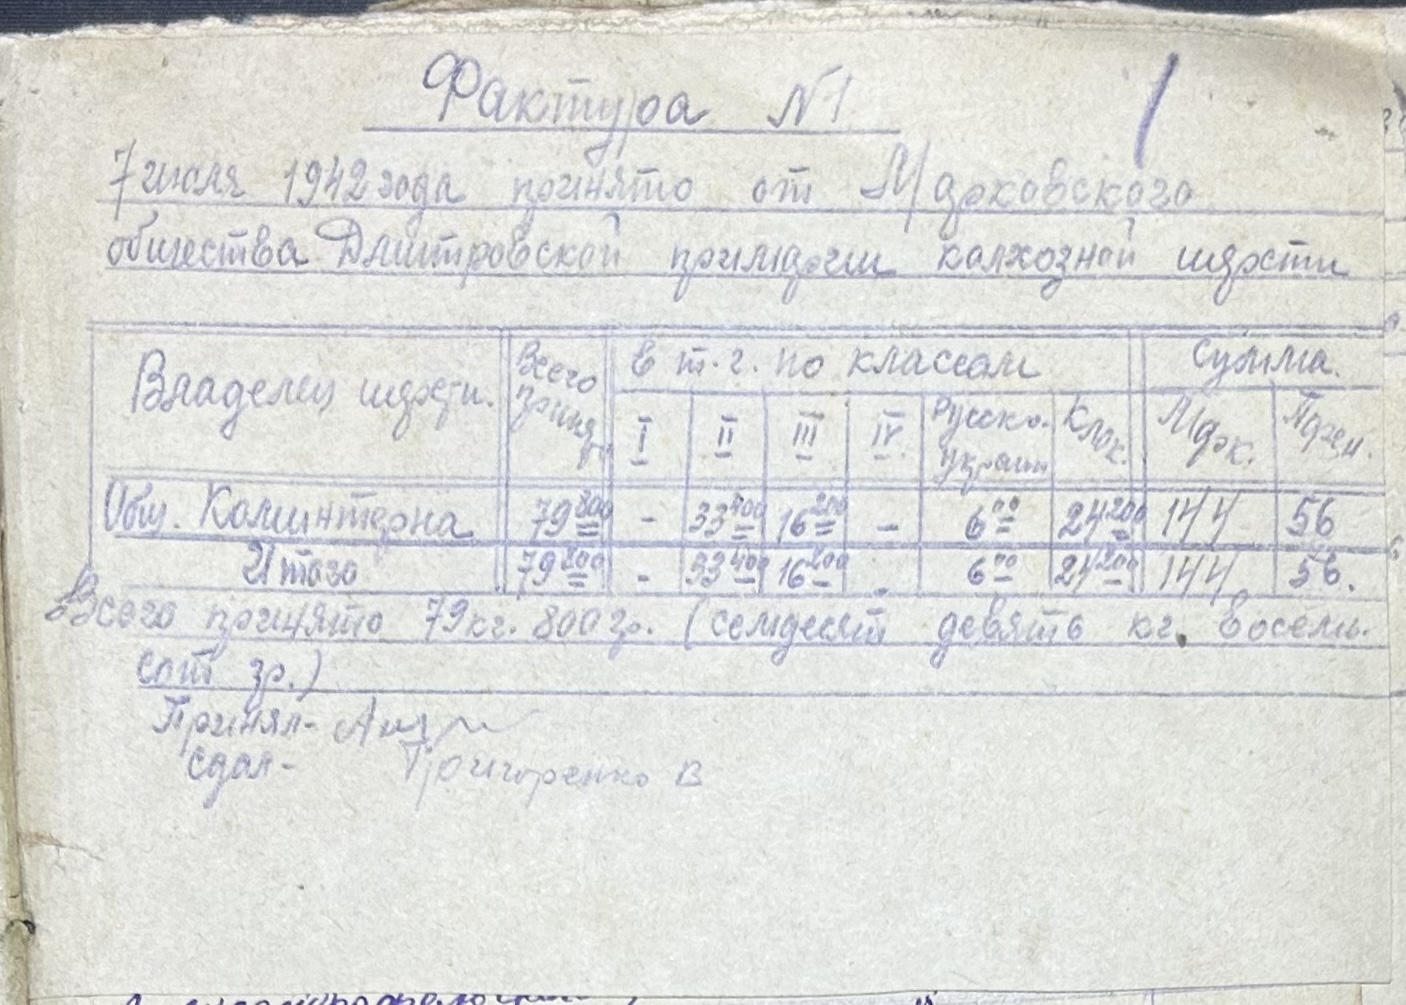 Фактура №1
7 июля 1942 года принято от Марковского
общества Дмитровской приймачки колхозной шерсти
Владелец шерсти. Всего принято В т. ч. по классам Сумма.
I II III IV Русско-украин. Клок. Марк. Пфен.
Общ. Коминтерна 79 800 - 33 400 16 200 - 6 00 24 200 144 56
Итого 79 800 - 33 400 16 200 - 6 00 24 200 144 56.
Всего принято 79 кг. 800 гр. (семдесят девять кг. восемь-
сот гр.)
Принял-
Сдал- Григоренко В